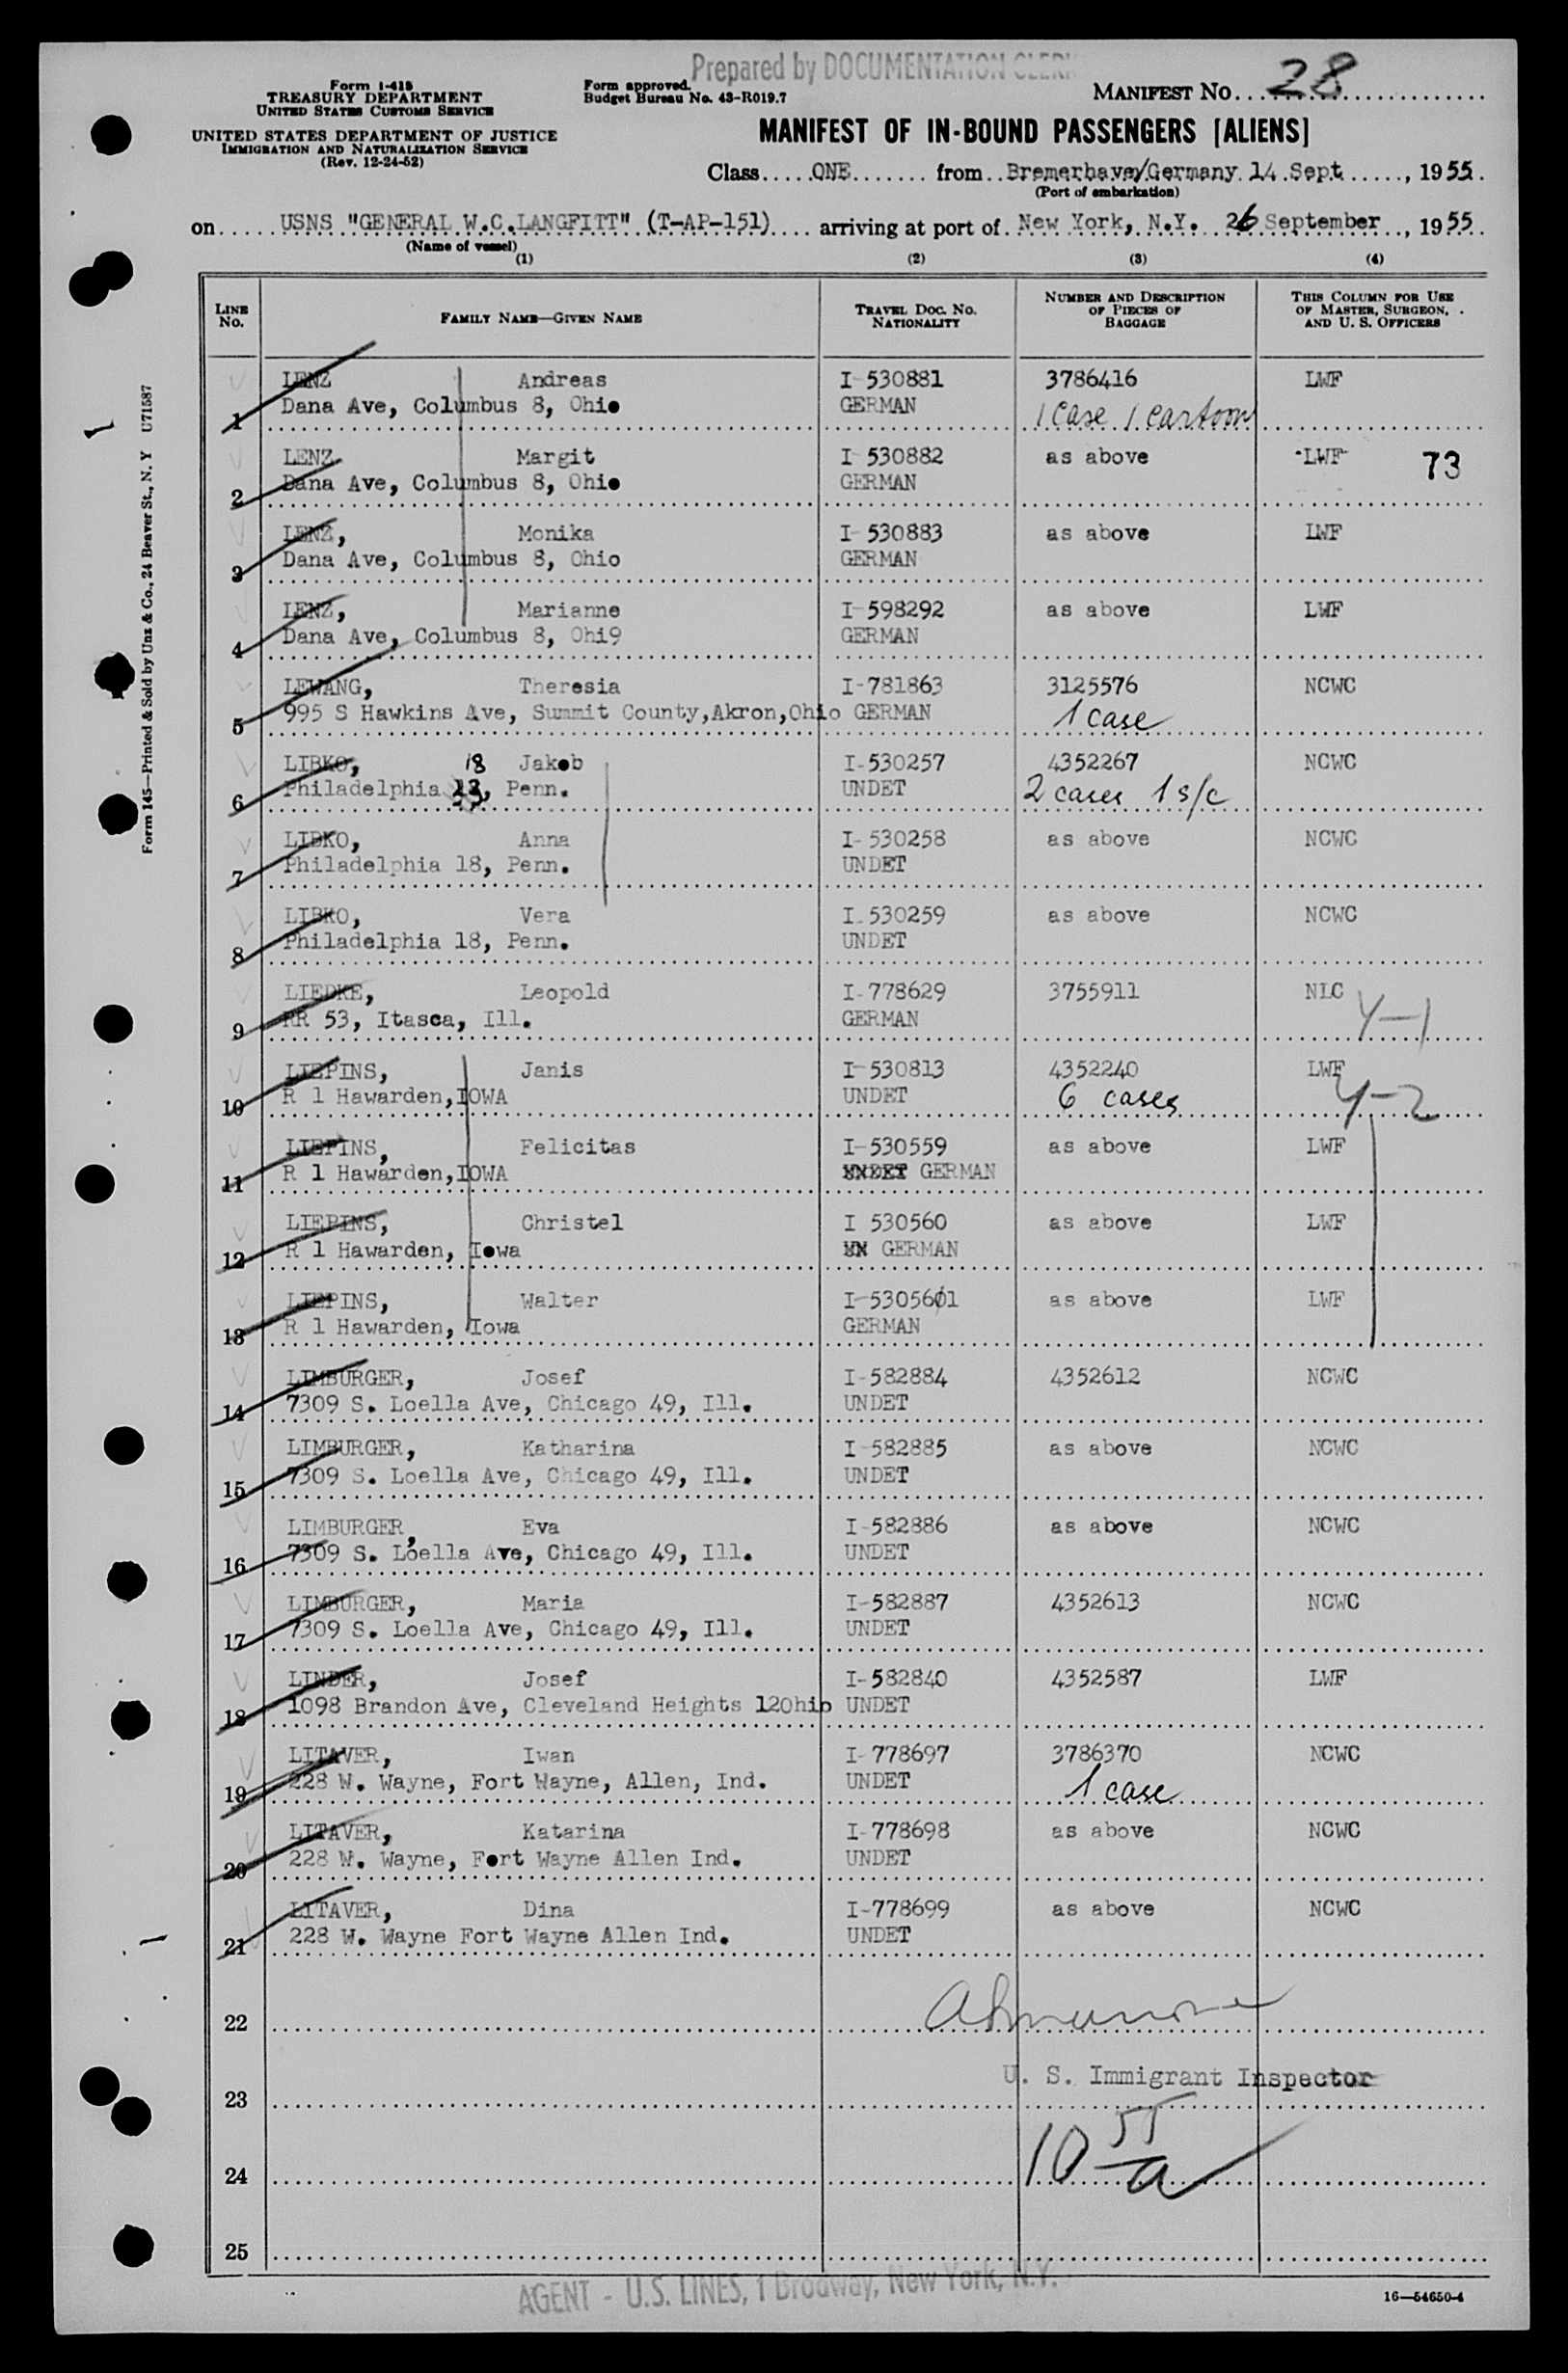 Prepared by DOCUMENTATION CLERK
Form I-418
TREASURY DEPARTMENT
UNITED STATES CUSTOMS SERVICE
UNITED STATES DEPARTMENT OF JUSTICE
IMMIGRATION AND NATURALIZATION SERVICE
(Rev. 12-24-52)
Form approved.
Budget Bureau No. 43-R019.7
MANIFEST NO. 28
MANIFEST OF IN-BOUND PASSENGERS [ALIENS]
Class ONE from Bremerhaven/Germany 14 Sept, 1955.
(Port of embarkation)
on USNS "GENERAL W.C.LANGFITT" (T-AP-151) arriving at port of New York, N.Y. 26 September, 1955.
(Name of vessel)
(1) (2) (3) (4)
LINE No. FAMILY NAME—GIVEN NAME TRAVEL DOC. NO. NATIONALITY NUMBER AND DESCRIPTION OF PIECES OF BAGGAGE THIS COLUMN FOR USE OF MASTER, SURGEON, AND U. S. OFFICERS
LENZ Andreas I-530881 3786416 LWF
1 Dana Ave, Columbus 8, Ohio GERMAN 1 case 1 cartoon
LENZ Margit I 530882 as above LWF 73
2 Dana Ave, Columbus 8, Ohio GERMAN
LENZ, Monika I-530883 as above LWF
3 Dana Ave, Columbus 8, Ohio GERMAN
LENZ, Marianne I-598292 as above LWF
4 Dana Ave, Columbus 8, Ohi9 GERMAN
LEWANG, Theresia I-781863 3125576 NCWC
5 995 S Hawkins Ave, Summit County,Akron,Ohio GERMAN 1 case
LIBKO, Jakob I-530257 4352267 NCWC
6 Philadelphia 18, Penn. UNDET 2 cases 1 s/c
LIBKO, Anna I-530258 as above NCWC
7 Philadelphia 18, Penn. UNDET
LIBKO, Vera I-530259 as above NCWC
8 Philadelphia 18, Penn. UNDET
LIEDKE, Leopold I-778629 3755911 NLC
9 RR 53, Itasca, Ill. GERMAN Y-1
LIEPINS, Janis I-530813 4352240 LWF
10 R 1 Hawarden,IOWA UNDET 6 cases Y-2
LIEPINS, Felicitas I-530559 as above LWF
11 R 1 Hawarden,IOWA UNDET GERMAN
LIEPINS, Christel I 530560 as above LWF
12 R 1 Hawarden, Iowa UN GERMAN
LIEPINS, Walter I-5305601 as above LWF
13 R 1 Hawarden, Iowa GERMAN
LIMBURGER, Josef I-582884 4352612 NCWC
14 7309 S. Loella Ave, Chicago 49, Ill. UNDET
LIMBURGER, Katharina I-582885 as above NCWC
15 7309 S. Loella Ave, Chicago 49, Ill. UNDET
LIMBURGER, Eva I-582886 as above NCWC
16 7309 S. Loella Ave, Chicago 49, Ill. UNDET
LIMBURGER, Maria I-582887 4352613 NCWC
17 7309 S. Loella Ave, Chicago 49, Ill. UNDET
LINDER, Josef I-582840 4352587 LWF
18 1098 Brandon Ave, Cleveland Heights 12Ohio UNDET
LITAVER, Iwan I-778697 3786370 NCWC
19 228 W. Wayne, Fort Wayne, Allen, Ind. UNDET 1 case
LITAVER, Katarina I-778698 as above NCWC
20 228 W. Wayne, Fort Wayne Allen Ind. UNDET
LITAVER, Dina I-778699 as above NCWC
21 228 W. Wayne Fort Wayne Allen Ind. UNDET
22
U. S. Immigrant Inspector
23
10 55/a
24
25
AGENT - U.S. LINES, 1 Brodway, New York, N.Y.
16—54650-4
Form 145—Printed & Sold by Unz & Co., 24 Beaver St., N. Y U71587